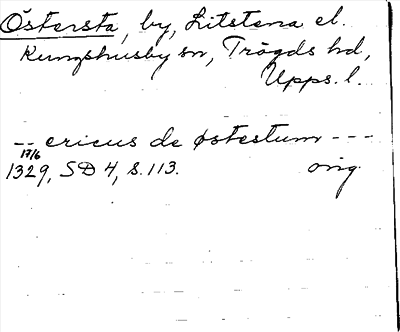 Östersta, by, Litslena el.
Kungshusby sn, Trögds hd,
Upps. l.
-- ericus de østestum ---
17/6
1329, SD 4, s. 113. orig.